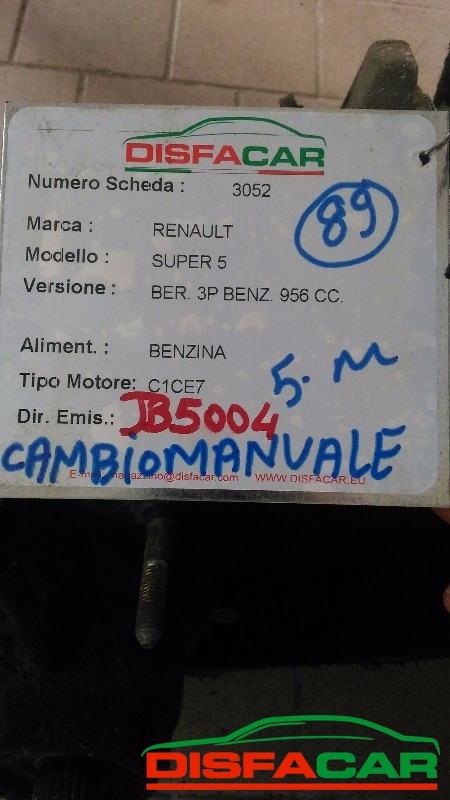 DISFACAR
Numero Scheda : 3052
89
Marca : RENAULT
Modello : SUPER 5
Versione : BER. 3P BENZ. 956 CC.
Aliment. : BENZINA
Tipo Motore: C1CE7
5. M
Dir. Emis.: JB5004
CAMBIO MANUALE
@disfacar.com WWW.DISFACAR.EU
DISFACAR